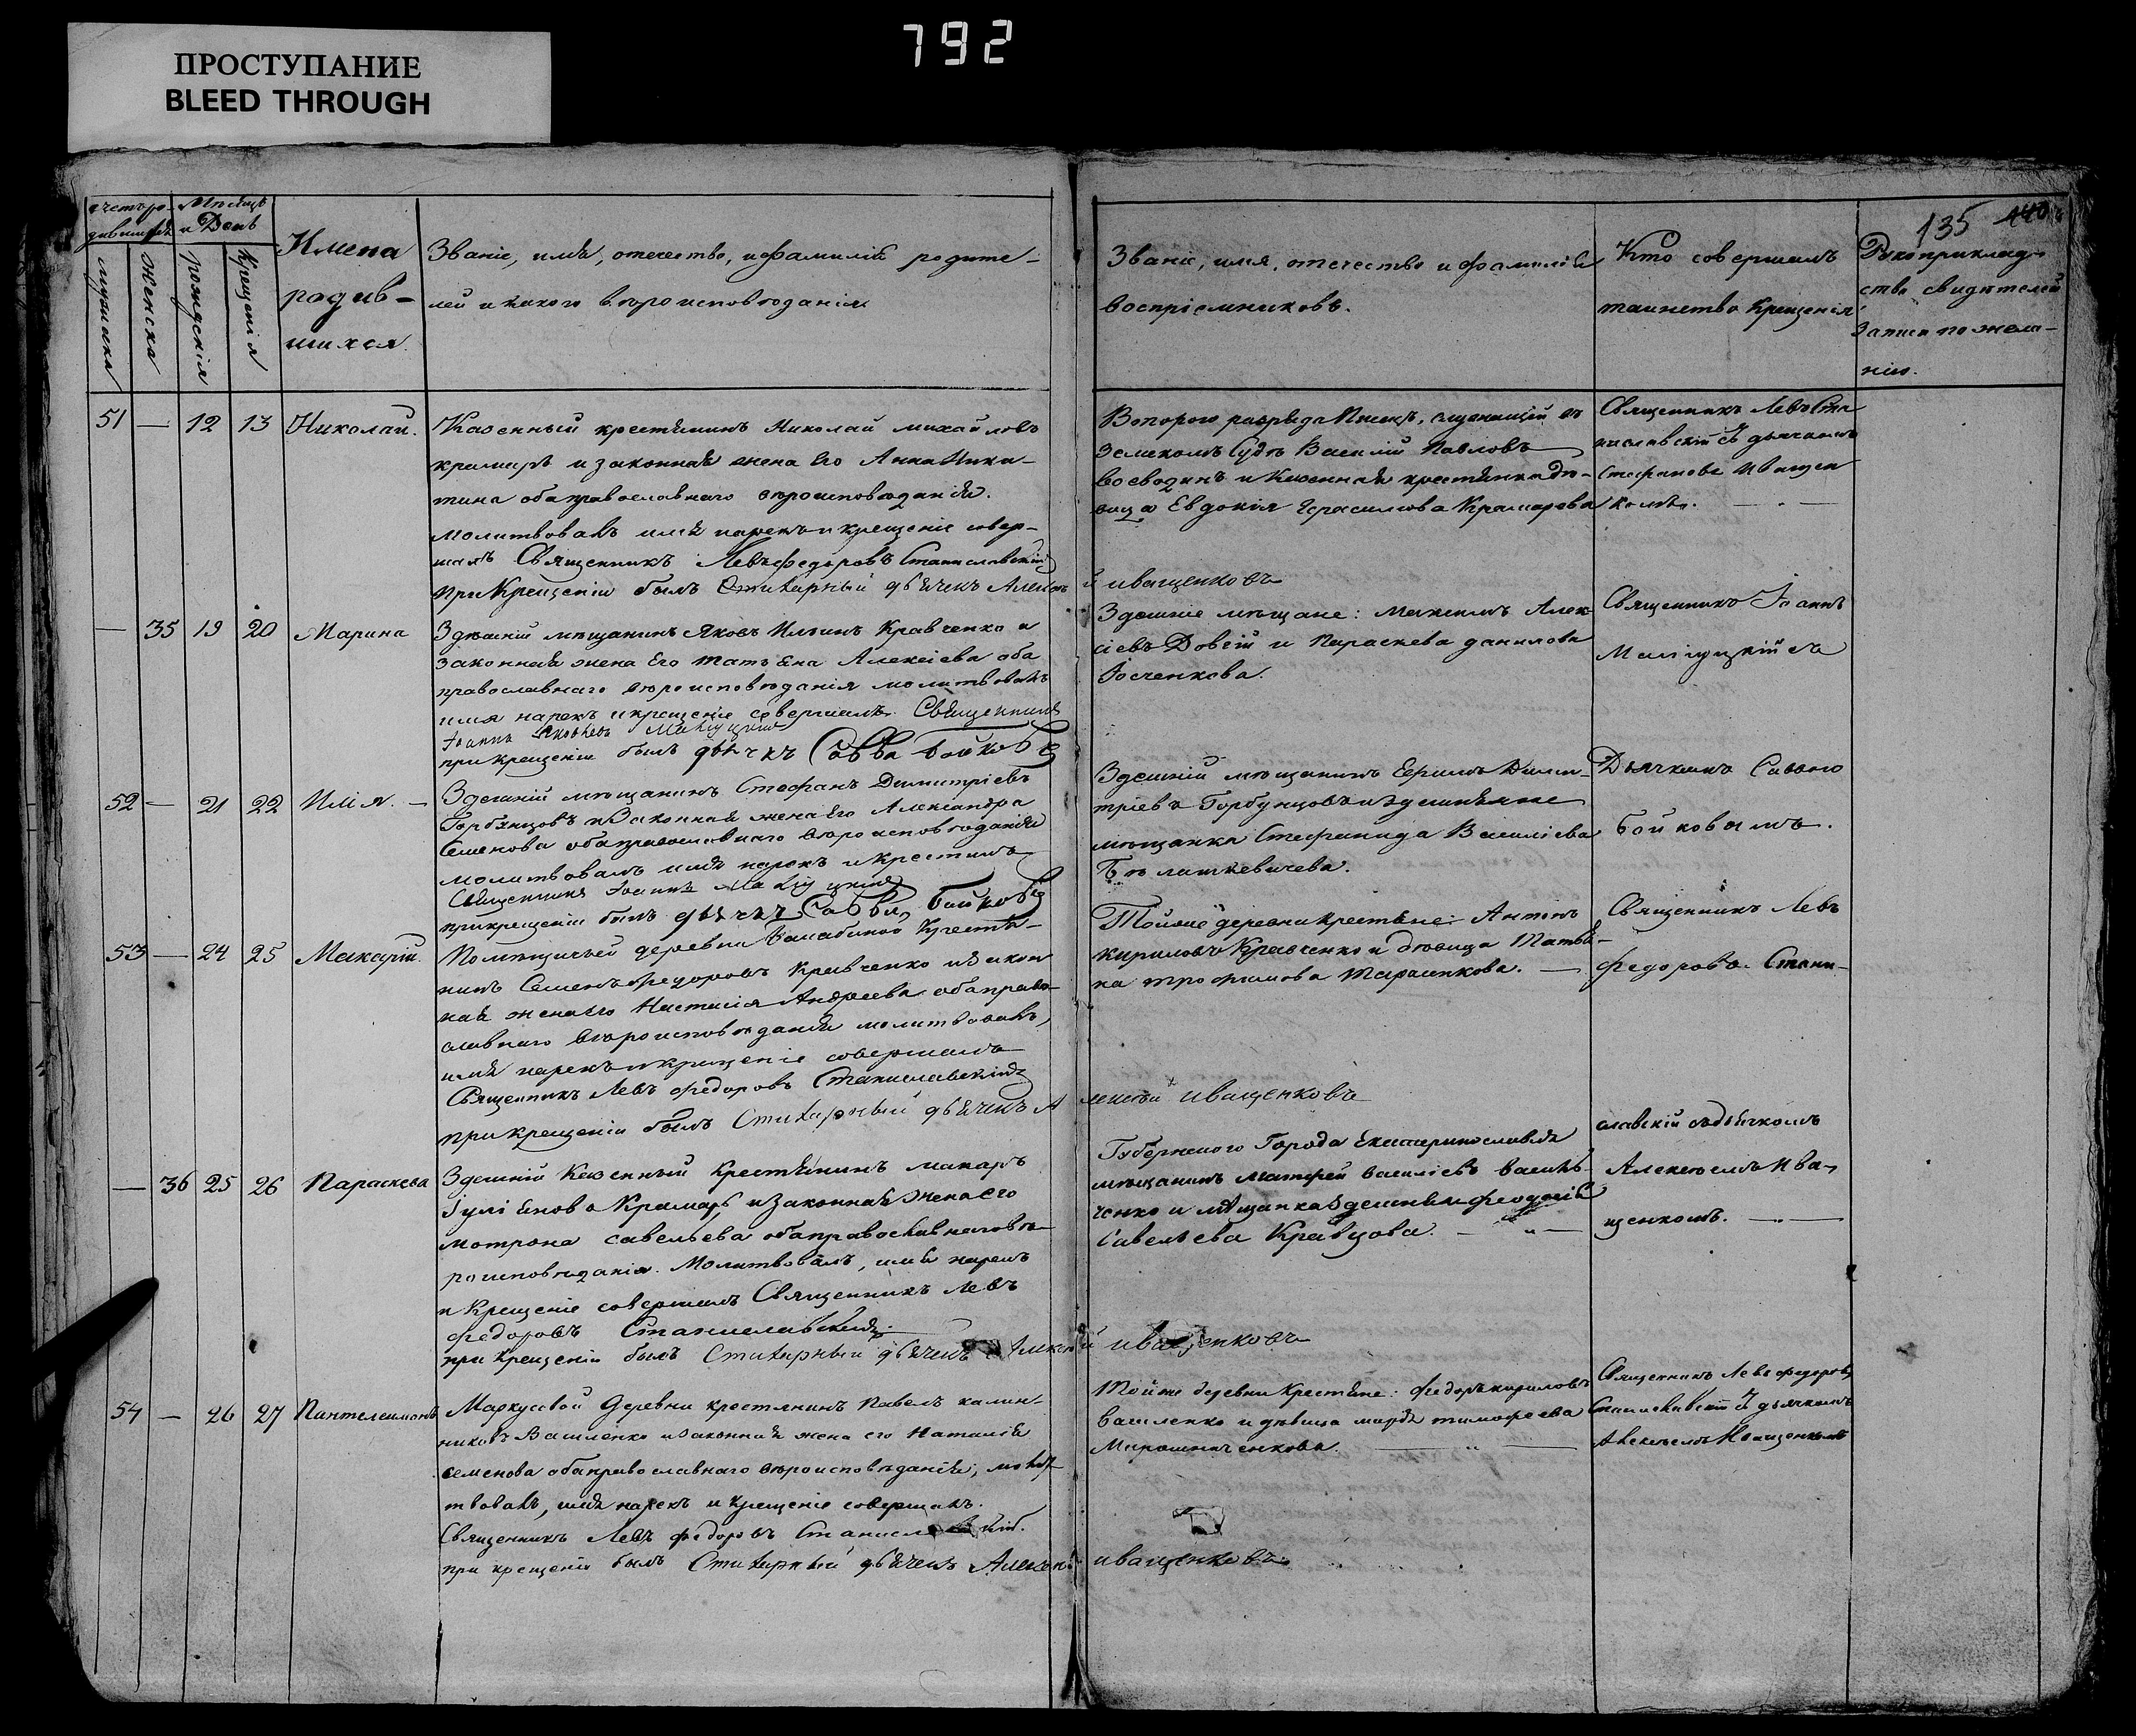 792
ПРОСТУПАНИЕ
BLEED THROUGH
135
Мѣсяцъ
и День
мужеска
женска
рожденія
крещенія
Имена
родив-
шихся.
Званіе, имя, отечество, и фамилія родите-
лей и какого вѣроисповѣданія
Званіе, имя, отечество и фамилія
воспріемниковъ.
Кто совершалъ
таинство крещенія
Рукоприклад-
ство свидѣтелей
записи по жела-
нію.
51 — 12 13 Николай.
Казенный крестьянинъ Николай Михайловъ
Крамарь и законная жена его Анна Ники-
тина оба православнаго вѣроисповѣданія.
молитвовалъ имя нарекъ и крещеніе совер-
шалъ Священникъ Левъ Федоровъ Станиславскій
при крещеніи былъ Стихарный дьячекъ Алексѣй Иващенковъ
Втораго разряда
Земскомъ Судѣ Василій Павловъ
и казенная крестьянка дѣ-
вица Евдокія Герасимова Крамарева
Священникъ Левъ Ста
ниславскій съ дьячкомъ
— 35 19 20 Марина
Здѣшній мѣщанинъ Яковъ Ильинъ Кравченко и
законная жена его Татьяна Алексіева оба
православнаго вѣроисповѣданія молитвовалъ
имя нарекъ и крещеніе совершалъ Священникъ
Іоаннъ Яковлевъ
при крещеніи былъ дьячекъ Савва Бойковъ
Здѣшніе мѣщане: Максимъ Алек-
сіевъ Довгій и Параскева Данилова
Священникъ Іоаннъ
52 — 21 22 Илія. —
Здѣшній мѣщанинъ Стефанъ Димитріевъ
Горбунцовъ и законная жена его Александра
Семенова оба православнаго вѣроисповѣданія
молитвовалъ имя нарекъ и крестилъ
Священникъ Іоаннъ
при крещеніи былъ дьячекъ Савва Бойковъ
Здѣшній мѣщанинъ Ефимъ Дими-
тріевъ Горбунцовъ и здѣшняя же
мѣщанка Стефанида Василіева
Дьячкомъ Саввою
Бойковымъ.
53 — 24 25 Макарій.
Помѣщичьей деревни крестья-
нинъ Семенъ Федоровъ Кравченко и закон
ная жена его Настасія Андреева оба право-
славнаго вѣроисповѣданія молитвовалъ,
имя нарекъ и крещеніе совершалъ
Священникъ Левъ Федоровъ Станиславскій
при крещеніи былъ Стихарный дьячекъ Алексѣй Иващенковъ
Той же деревни крестьяне: Антонъ
Кириловъ Кравченко и дѣвица Татья-
на Трофимова Тарасенкова. —
Священникъ Левъ
Федоровъ Стани-
славскій съ дьячкомъ
Алексѣемъ Ива-
щенкомъ. —
— 36 25 26 Параскева
Здѣшній Казенный Крестьянинъ Макаръ
Іуліяновъ Крамарь, и законная жена его
Мотрона Савельева оба православнаго вѣ-
роисповѣданія. Молитвовалъ, имя нарекъ
и Крещеніе совершалъ Священникъ Левъ
Федоровъ Станиславскій
при крещеніи былъ Стихарный дьячекъ Алексѣй Иващенковъ
Губернскаго Города Екатеринославля
мѣщанинъ Матфей Василіевъ Василь-
ченко и мѣщанка здѣшняя Феодосія
Савельева Кравцова. —
54 — 26 27 Пантелеимонъ
Маркусовой Деревни крестьянинъ Павелъ Калин-
никовъ Василенко и законная жена его Наталія
Семенова оба православнаго вѣроисповѣданія, моли-
твовалъ, имя нарекъ и крещеніе совершалъ.
Священникъ Левъ Федоровъ Станиславскій.
при крещеніи былъ Стихарный дьячекъ Алексѣй Иващенковъ
Той же деревни крестьяне: Федоръ Кириловъ
Василенко и дѣвица Марѳа Тимофеева
Мирошниченкова. —
Священникъ Левъ Федоровъ
Станиславскій съ дьячкомъ
Алексѣемъ Иващенкомъ